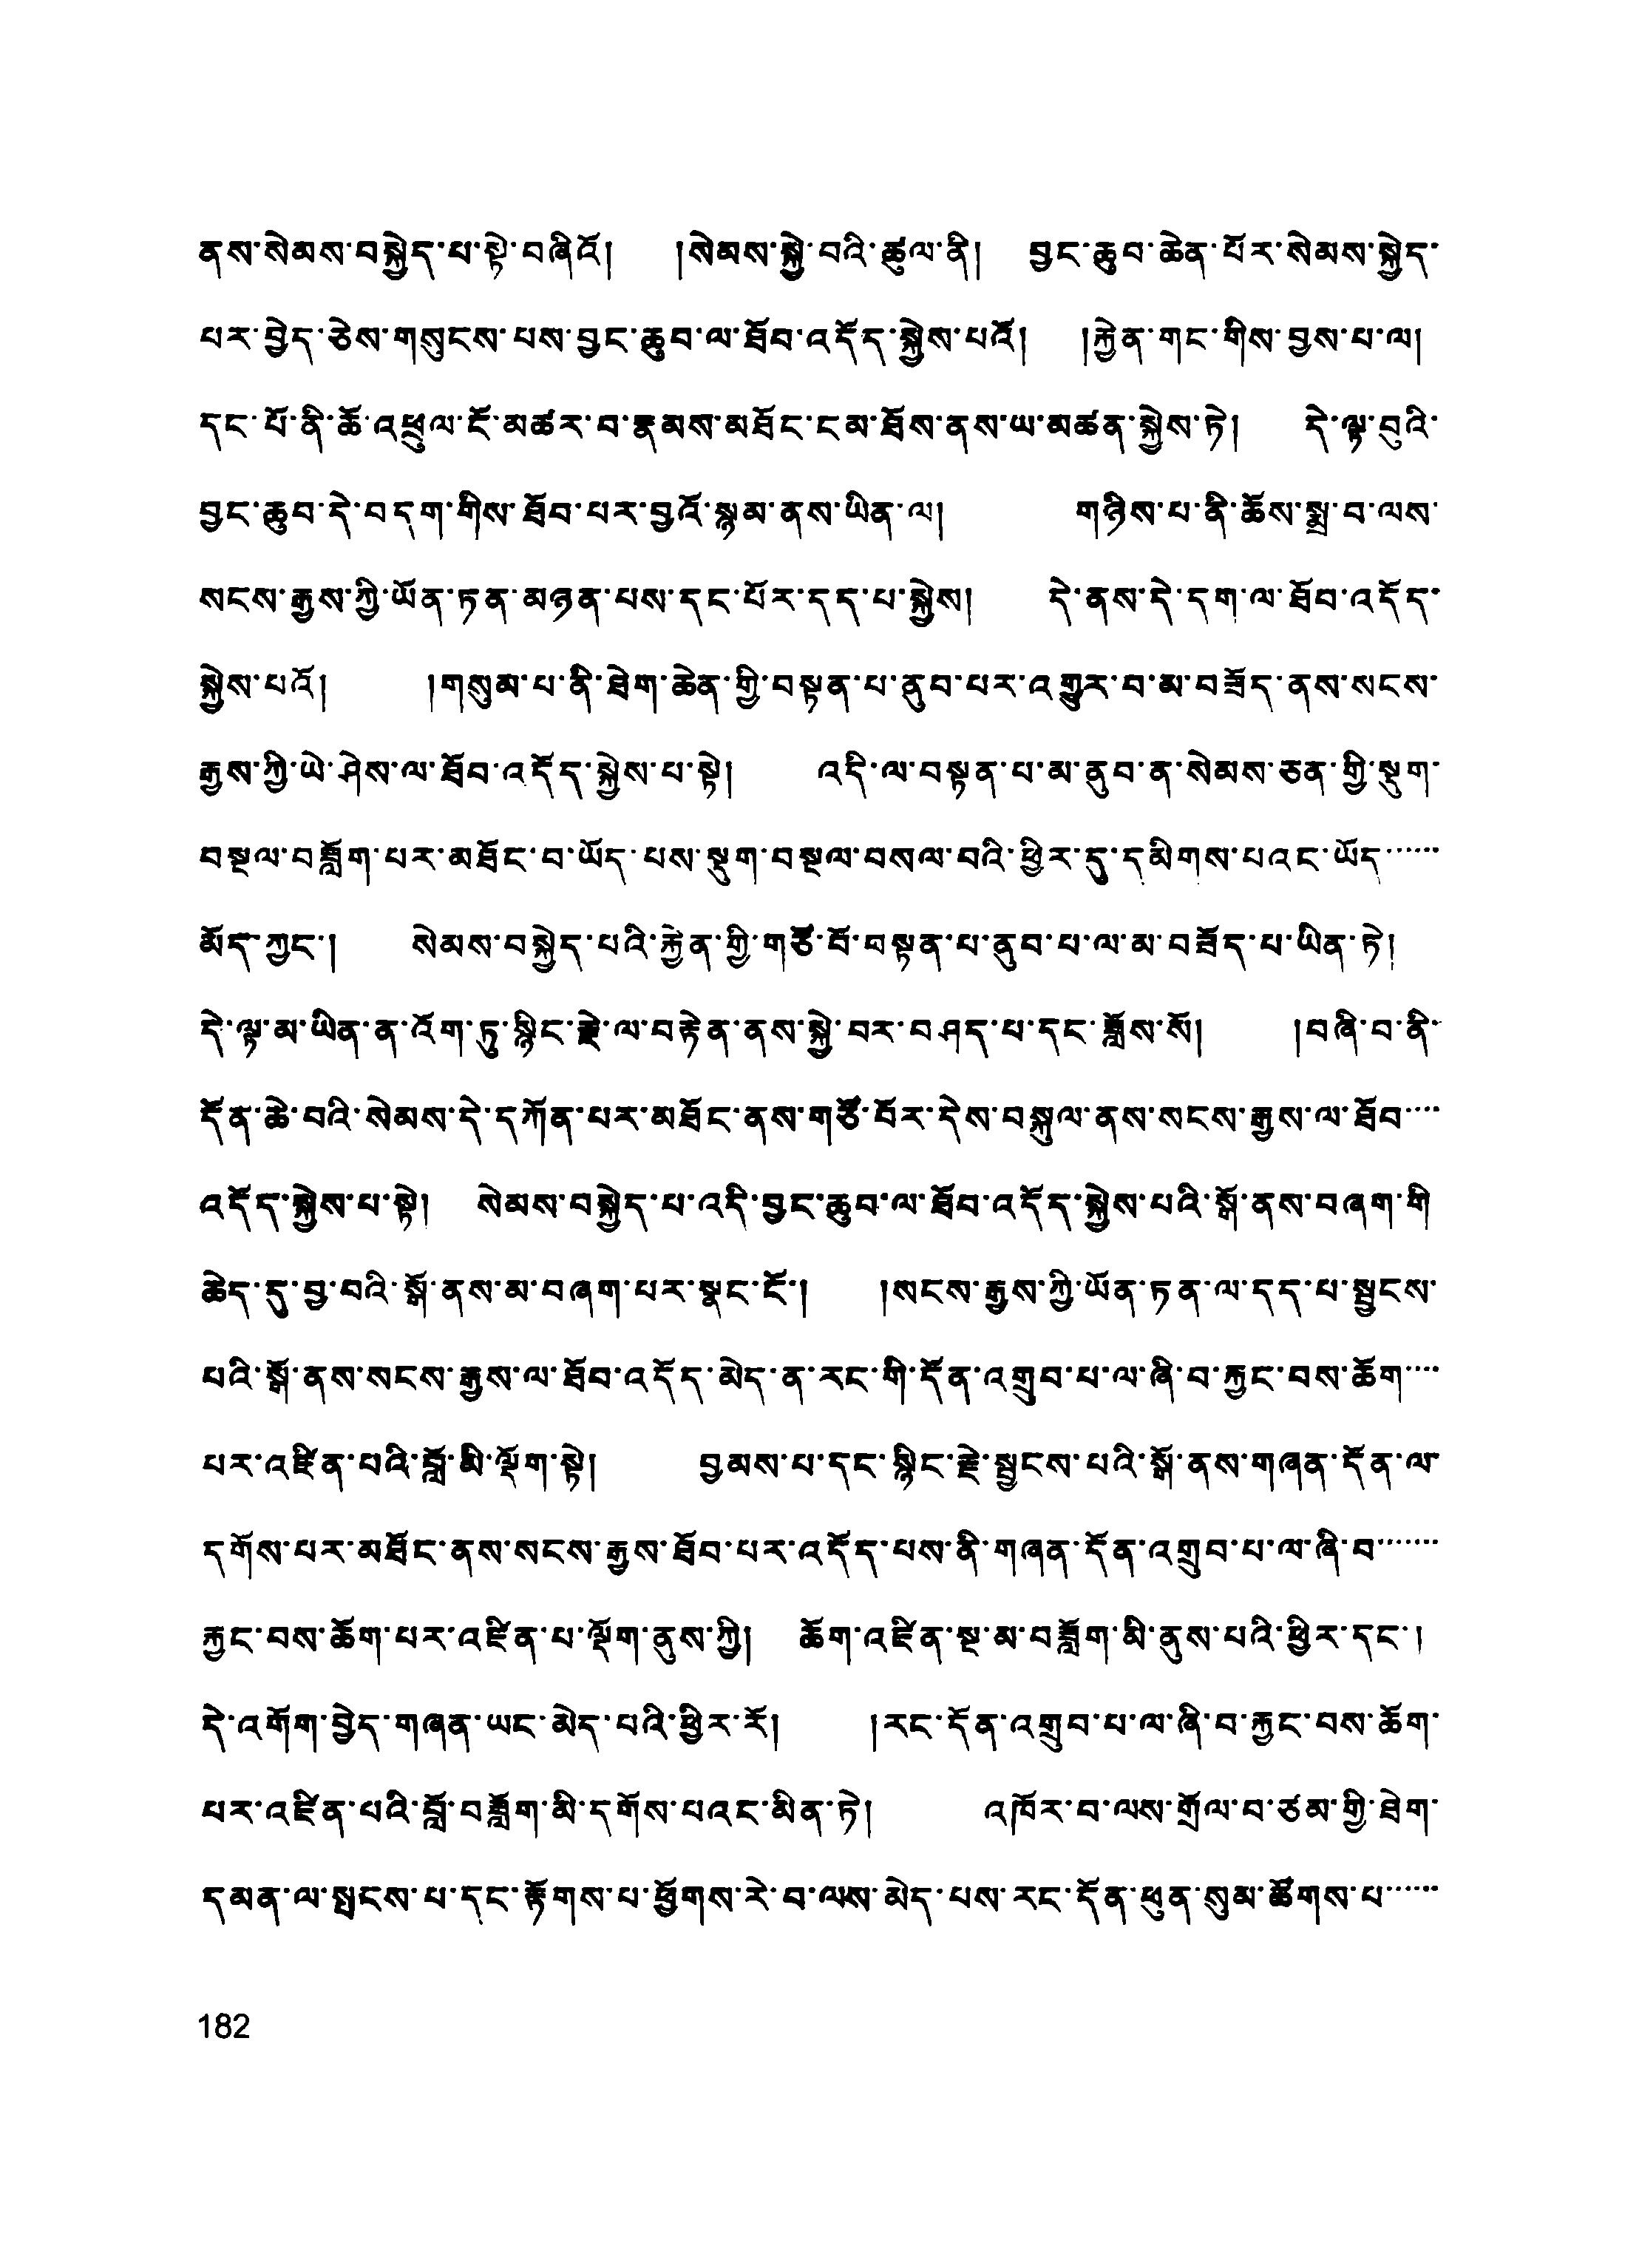 ནས་སེམས་བསྐྱེད་པ་སྟེ་བཞིའོ། །སེམས་སྐྱེ་བའི་ཚུལ་ནི། བྱང་ཆུབ་ཆེན་པོར་སེམས་སྐྱེད་
པར་བྱེད་ཅེས་གསུངས་པས་བྱང་ཆུབ་ལ་ཐོབ་འདོད་སྐྱེས་པའོ། །རྐྱེན་གང་གིས་བྱས་པ་ལ།
དང་པོ་ནི་ཆོ་འཕྲུལ་ངོ་མཚར་བ་རྣམས་མཐོང་ངམ་ཐོས་ནས་ཡ་མཚན་སྐྱེས་ཏེ། དེ་ལྟ་བུའི་
བྱང་ཆུབ་དེ་བདག་གིས་ཐོབ་པར་བྱའོ་སྙམ་ནས་ཡིན་ལ། གཉིས་པ་ནི་ཆོས་སྨྲ་བ་ལས་
སངས་རྒྱས་ཀྱི་ཡོན་ཏན་མཉན་པས་དང་པོར་དད་པ་སྐྱེས། དེ་ནས་དེ་དག་ལ་ཐོབ་འདོད་
སྐྱེས་པའོ། །གསུམ་པ་ནི་ཐེག་ཆེན་གྱི་བསྟན་པ་ནུབ་པར་འགྱུར་བ་མ་བཟོད་ནས་སངས་
རྒྱས་ཀྱི་ཡེ་ཤེས་ལ་ཐོབ་འདོད་སྐྱེས་པ་སྟེ། འདི་ལ་བསྟན་པ་མ་ནུབ་ན་སེམས་ཅན་གྱི་སྡུག་
བསྔལ་བཟློག་པར་མཐོང་བ་ཡོད་པས་སྡུག་བསྔལ་བསལ་བའི་ཕྱིར་དུ་དམིགས་པའང་ཡོད་……
མོད་ཀྱང་། སེམས་བསྐྱེད་པའི་རྐྱེན་གྱི་གཙོ་བོ་བསྟན་པ་ནུབ་པ་ལ་མ་བཟོད་པ་ཡིན་ཏེ།
དེ་ལྟ་མ་ཡིན་ན་འོག་ཏུ་སྙིང་རྗེ་ལ་བརྟེན་ནས་སྐྱེ་བར་བཤད་པ་དང་ཟློས་སོ། །བཞི་བ་ནི་
དོན་ཆེ་བའི་སེམས་དེ་དཀོན་པར་མཐོང་ནས་གཙོ་བོར་དེས་བསྐུལ་ནས་སངས་རྒྱས་ལ་ཐོབ་…
འདོད་སྐྱེས་པ་སྟེ། སེམས་བསྐྱེད་པ་འདི་བྱང་ཆུབ་ལ་ཐོབ་འདོད་སྐྱེས་པའི་སྒོ་ནས་བཞག་གི
ཆེད་དུ་བྱ་བའི་སྒོ་ནས་མ་བཞག་པར་སྣང་ངོ་། །སངས་རྒྱས་ཀྱི་ཡོན་ཏན་ལ་དད་པ་སྦྱངས་
པའི་སྒོ་ནས་སངས་རྒྱས་ལ་ཐོབ་འདོད་མེད་ན་རང་གི་དོན་འགྲུབ་པ་ལ་ཞི་བ་རྐྱང་བས་ཆོག་…
པར་འཛིན་པའི་བློ་མི་ལྡོག་སྟེ། བྱམས་པ་དང་སྙིང་རྗེ་སྦྱངས་པའི་སྒོ་ནས་གཞན་དོན་ལ་
དགོས་པར་མཐོང་ནས་སངས་རྒྱས་ཐོབ་པར་འདོད་པས་ནི་གཞན་དོན་འགྲུབ་པ་ལ་ཞི་བ་……
རྐྱང་བས་ཆོག་པར་འཛིན་པ་ལྡོག་ནུས་ཀྱི། ཆོག་འཛིན་སྔ་མ་བཟློག་མི་ནུས་པའི་ཕྱིར་དང་།
དེ་འགོག་བྱེད་གཞན་ཡང་མེད་པའི་ཕྱིར་རོ། །རང་དོན་འགྲུབ་པ་ལ་ཞི་བ་རྐྱང་བས་ཆོག་
པར་འཛིན་པའི་བློ་བཟློག་མི་དགོས་པའང་མིན་ཏེ། འཁོར་བ་ལས་གྲོལ་བ་ཙམ་གྱི་ཐེག་
དམན་ལ་སྤངས་པ་དང་རྟོགས་པ་ཕྱོགས་རེ་བ་ལས་མེད་པས་རང་དོན་ཕུན་སུམ་ཚོགས་པ་……
182